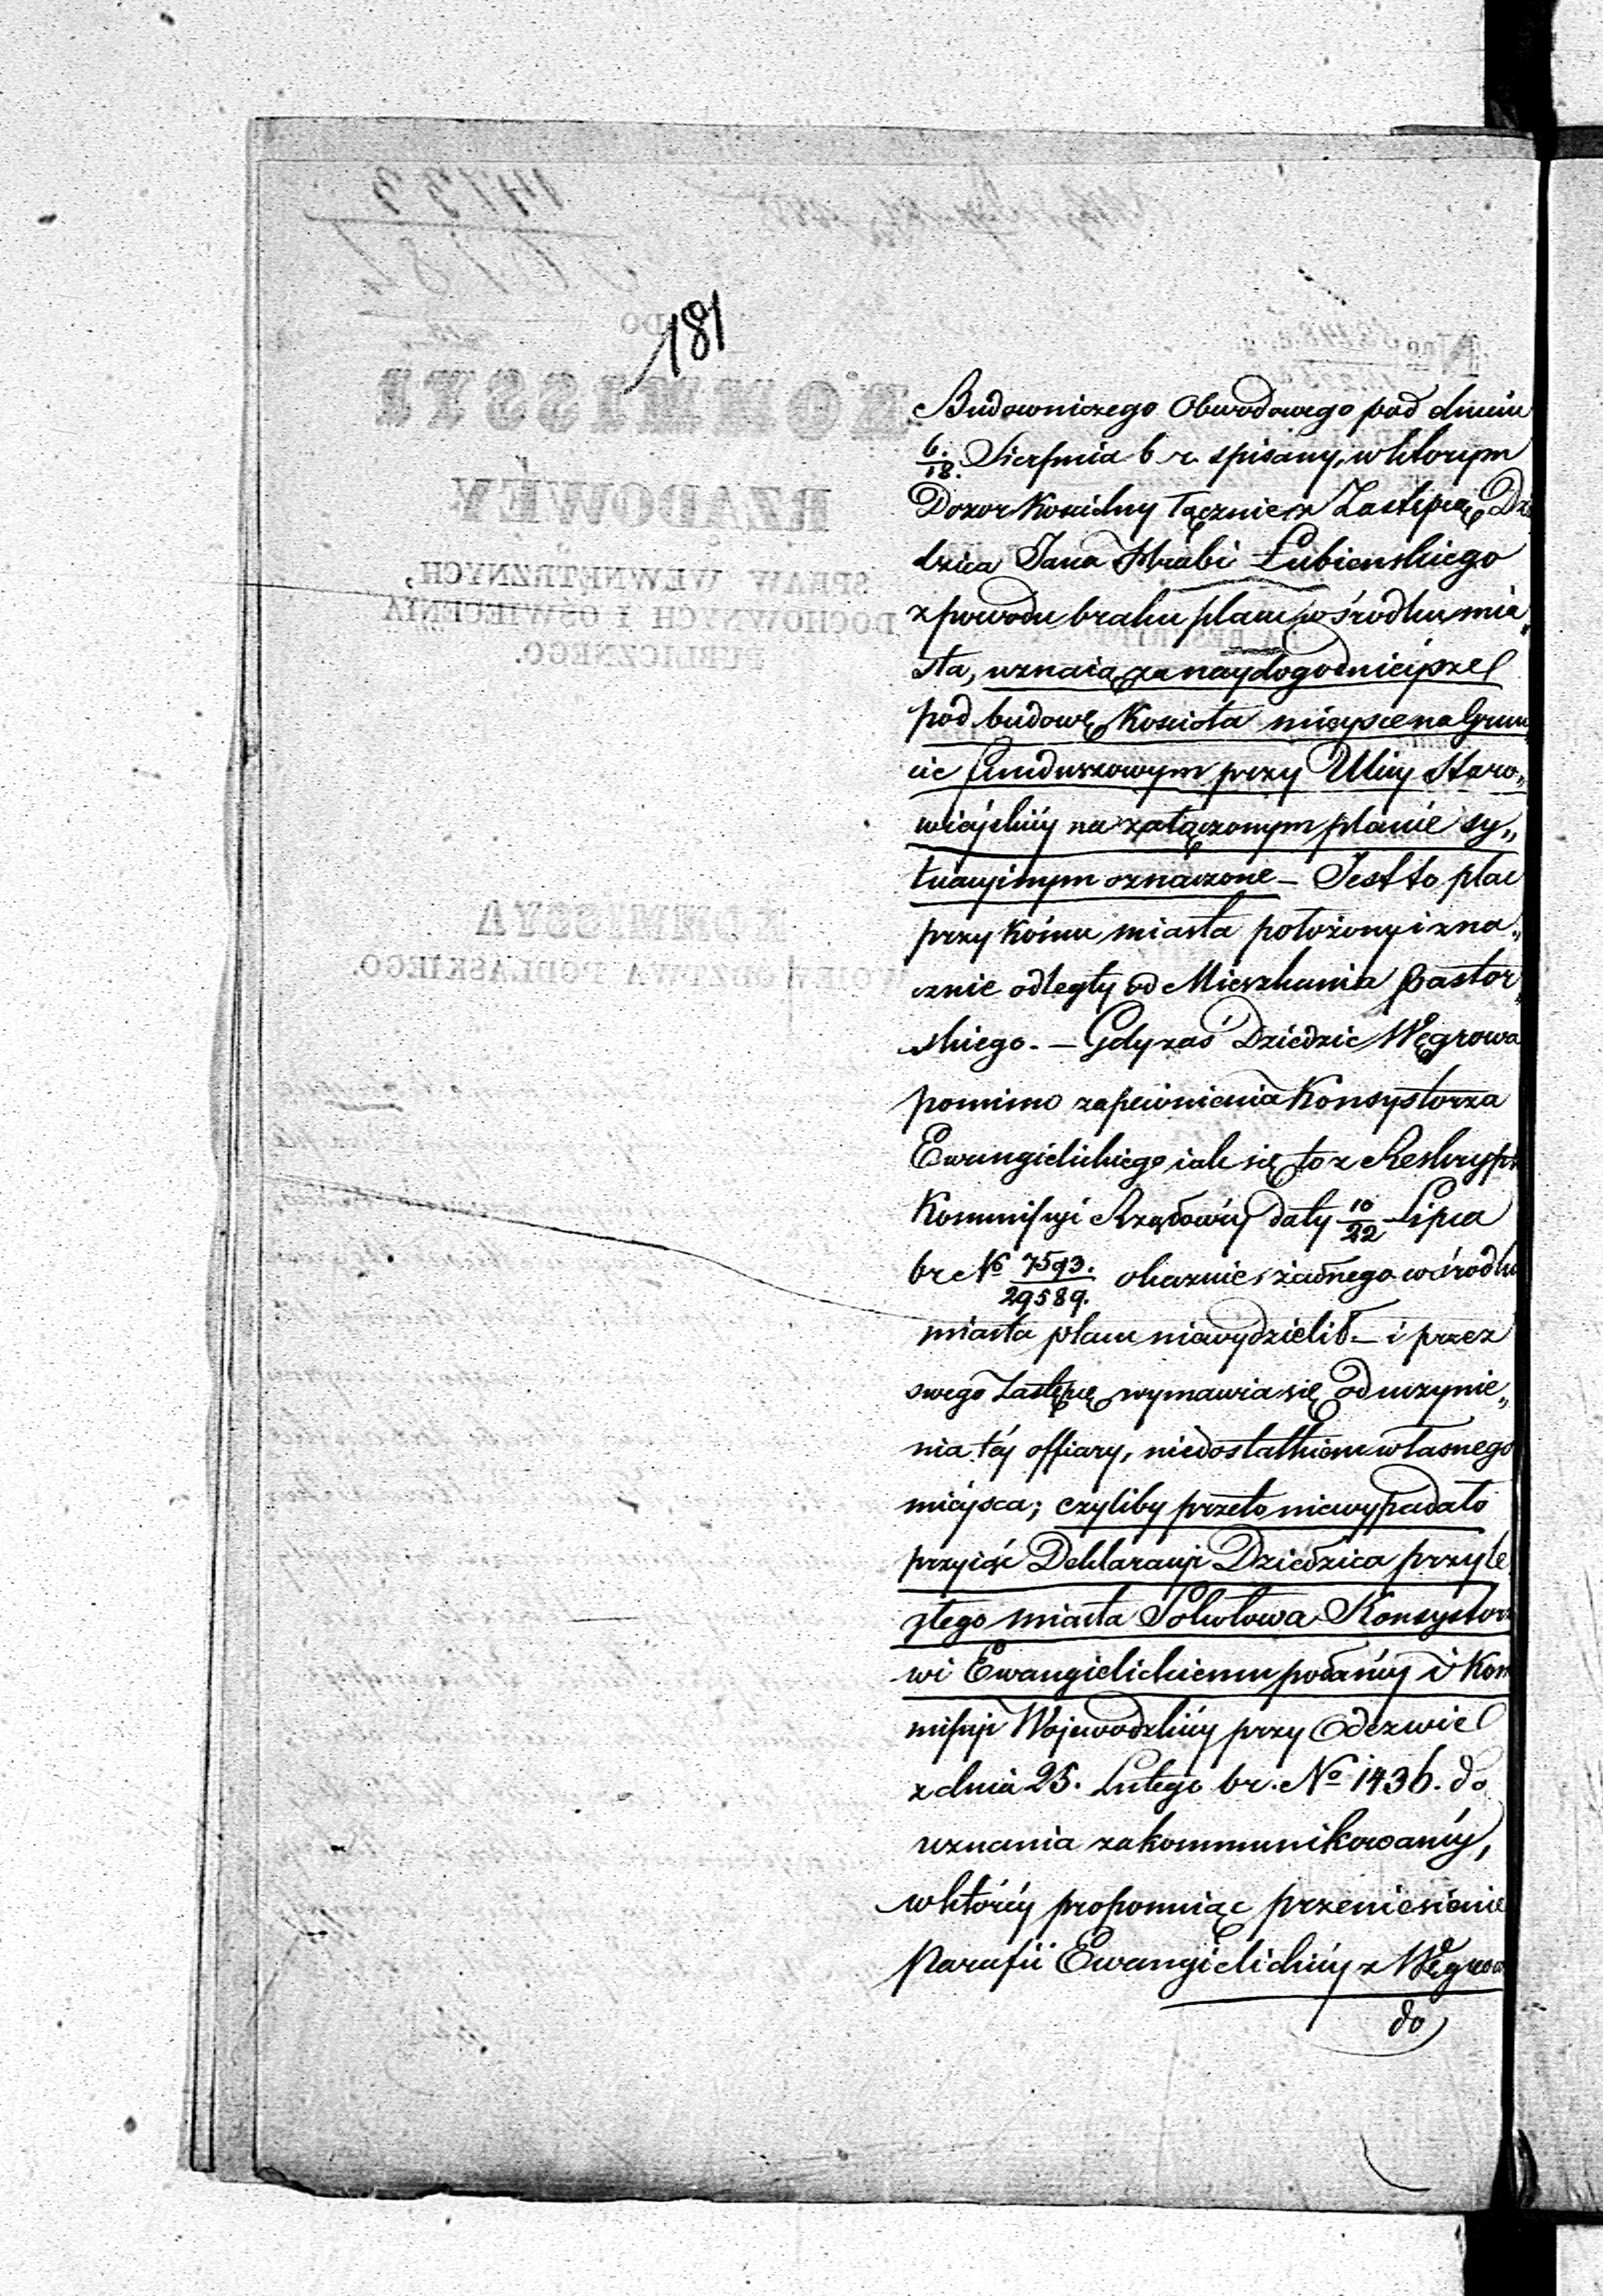 181
Budowniczego Obwodowego pod dniem
6./18. Sierpnia b r. spisany, w którym
Dozor Kościelny łącznie z Zastępcą Dzie
dzica Jana Hrabi Łubienskiego
z powodu braku placu w środku mia„
sta, uznaią za naydogodnieysze
pod budowę Kościoła mieysce na Grun„
cie funduszowym przy Ulicy Staro„
wieyskiéy na załączonym planie sy„
tuacyinym oznaczone – Jest to plac
przy Końcu miasta położony i zna„
cznie odległy od Mieszkania Pastor„
skiego. – Gdy zaś Dziedzic Węgrowa
pomimo zapewnienia Konsystorza
Ewangielickiego iak się to z Reskryptu
Kommissyi Rządowéy daty 10/22 Lipca
br No 7593./29589. okazuie, żadnego w środku
miasta placu niewydzielił – i przez
swego Zastępcę wymawia się od uczynie„
nia téy offiary, niedostatkiem własnego
mieysca; czyliby przeto niewypadało
przyiąć Deklaracyi Dziedzica przyle
głego miasta Sokołowa Konsystorzo
wi Ewangielickiemu podanéy i Kom
missyi Wojewodzkiéy przy Odezwie
z dnia 25. Lutego br. No 1436. do
uznania zakommunikowanéy,
w któréy proponuiąc przeniesienie
Parafii Ewangielickiéy z Węgrowa
do